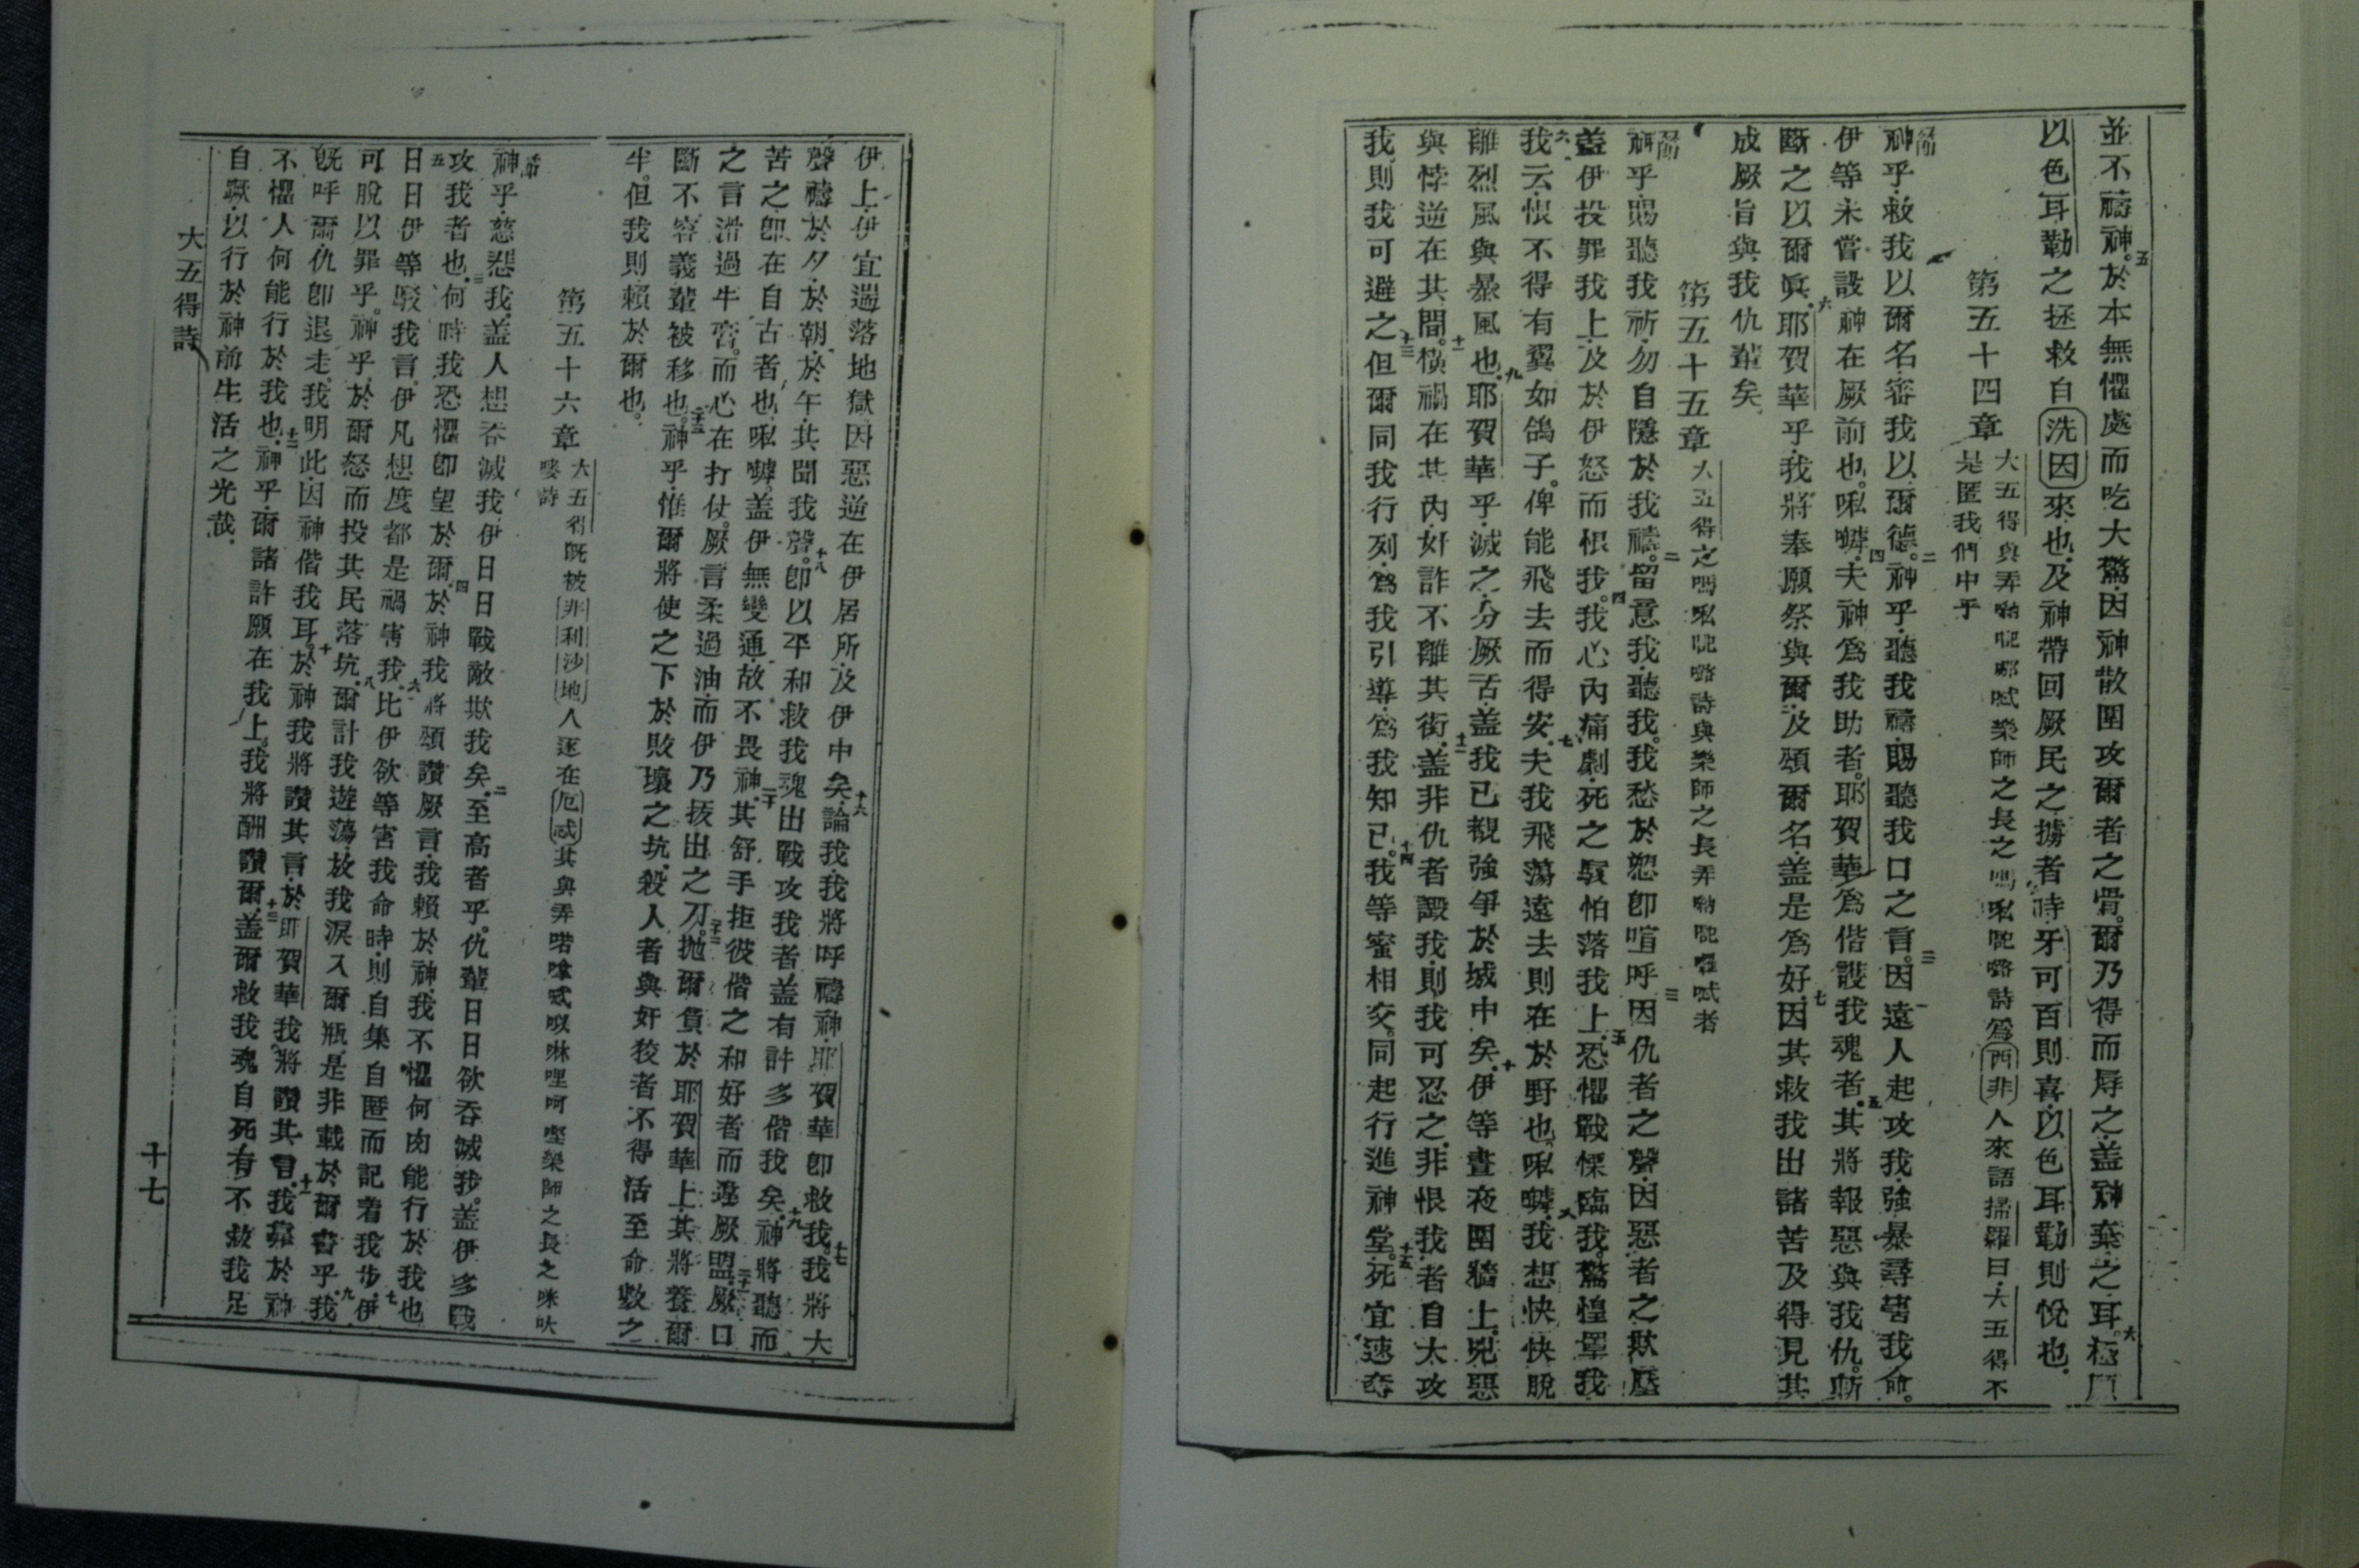 並不禱神。於本無懼處而吃大驚、因神散圍攻爾者之骨。爾乃得而辱之、蓋神棄之耳。
以色耳勒之拯救自洗因來也、及神帶回厥民之擄者時、牙可百則喜、以色耳勒則悅也、
第五十四章
大五得與弄
樂師之長之
詩為西非人來語掃羅曰、大五得不
是匿我們中乎
神乎、救我以爾名、審我以爾德。二神乎、聽我禱、賜聽我口之言。三因遠人起攻我、強暴尋害我命。
伊等未嘗設神在厥前也。𠹌㘔、四夫神為我助者。耶賀華為偕護我魂者。五其將報惡與我仇。斬
斷之以爾眞、六耶賀華乎、我將奉願祭與爾、及頌爾名、蓋是為好、七因其救我出諸苦及得見其
成厥旨與我仇輩矣、
第五十五章
大五得之
詩與樂師之長弄
者
神乎、賜聽我祈、勿自隱於我禱。二留意我、聽我。我愁於怨卽喧呼、三因仇者之聲、因惡者之欺壓
蓋伊投罪我上、及於伊怒而恨我。四我心內痛劇、死之駭怕落我上、五恐懼戰慄臨我。驚惶罩我、
六我云、恨不得有翼如鴿子。俾能飛去而得安。七夫我飛蕩遠去則在於野也。𠹌㘔、八我想快快脫
離烈風與暴風也、九耶賀華乎、滅之、分厥舌、蓋我已覩強爭於城中矣、十伊等晝夜圍牆上。兇惡
與悖逆在其間。十一橫禍在其內、奸詐不離其街、十二蓋非仇者譭我、則我可忍之、非恨我者自大攻
我、則我可避之、十三但爾同我行列、為我引導、為我知已。十四我等蜜相交。同起行進神堂。十五死宜速奪
伊上、伊宜遄落地獄、因惡逆在伊居所、及伊中矣、十六論我、我將呼禱神、耶賀華卽救我。十七我將大
聲禱於夕、於朝、於午、其聞我聲。十八卽以平和救我魂出戰攻我者、蓋有許多偕我矣、十九神將聽而
苦之、卽在自古者也、𠹌㘔。蓋伊無變通、故不畏神、二十其舒手拒彼偕之和好者而違厥盟、二十一厥口
之言滑過牛膏。而心在打仗。厥言柔過油、而伊乃拔出之刀。二十二拋爾負於耶賀華上、其將養爾
斷不容義輩被移也。二十三神乎、惟爾將使之下於敗壞之坑、殺人者與奸狡者不得活至命數之
半。但我則賴於爾也。
第五十六章
大五得既被非利沙地人逐在厄忒其與弄
樂師之長之
詩
神乎、慈恕我、蓋人想吞滅我、伊日日戰敵欺我矣、二至高者乎。仇輩日日欲吞滅我。蓋伊多戰
攻我者也、三何時我恐懼卽望於爾、四於神我將頌讚厥言、我賴於神、我不懼何肉能行於我也
五日日伊等駁我言。伊凡想度都是禍害我、六比伊欲等害我命時、則自集自匿而記着我步、七伊
可脫以罪乎。神乎、於爾怒而投其民落坑、八爾計我遊蕩、放我淚入爾瓶、是非載於爾書乎、九我
旣呼爾、仇卽退走。我明此、因神偕我耳。十於神我將讚其言、於耶賀華我將讚其言、十一我靠於神
不懼人何能行於我也、十二神乎、爾諸許願在我上。我將酬讚爾、十三蓋爾救我魂自死、有不救我足
自蹶、以行於神前生活之光哉、
大五得詩
十七